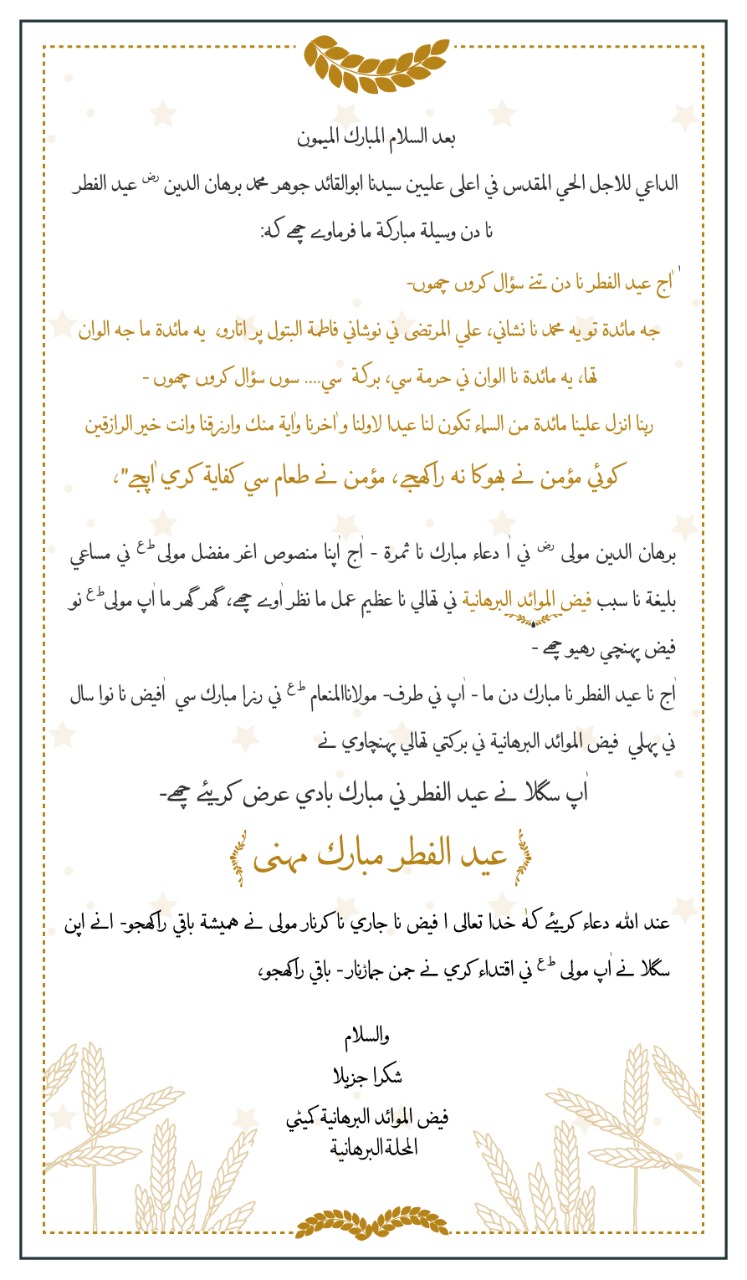 بعد السلام المبارك الميمون
الداعي للاجل الحي المقدس في اعلى عليين سيدنا ابوالقائد جوهر محمد برهان الدين رض عيد الفطر
نا دن وسيلة مباركة ما فرماوے چھے كہ:
'اٰج عيد الفطر نا دن تنے سؤال كروں چھوں-
جه مائدة تو يه محمد نا نشاني، علي المرتضى ني نوشاني فاطمة البتول پر اتارو، يه مائدة ما جه الوان
تھا، يه مائدة نا الوان ني حرمة سي، بركة سي.... سوں سؤال كروں چھوں -
ربنا انزل علينا مائدة من السماء تكون لنا عيدا لاولنا واٰخرنا واٰية منك وارزقنا وانت خير الرازقين
كوئي مؤمن نے بھوكا نه راكھجے، مؤمن نے طعام سي كفاية كري اٰپجے"،
برهان الدين مولى رض ني اٰ دعاء مبارك نا ثمرة - اٰج اٰپنا منصوص اغر مفضل مولى طع ني مساعي
بليغة نا سبب فيض الموائد البرهانية ني تھالي نا عظيم عمل ما نظر اٰوے چھے، گھر گھر ما اٰپ مولى طع نو
فيض پہنچي رهيو چھے -
اٰج نا عيد الفطر نا مبارك دن ما - اٰپ ني طرف- مولانا المنعام طع ني رزا مبارك سي اٰفيض نا نوا سال
ني پهلي فيض الموائد البرهانية ني بركتي تھالي پہنچاوي نے
اٰپ سگلا نے عيد الفطر ني مبارك بادي عرض كريئے چھے-
عيد الفطر مبارك مہنى
عند الله دعاء كريئے كہ خدا تعالى ا فيض نا جاري نا كرنار مولى نے هميشة باقي راكھجو- انے اپن
سگلا نے اٰپ مولى طع ني اقتداء كري نے جمن جماڑنار - باقي راكھجو،
والسلام
شكرا جزيلا
فيض الموائد البرهانية كميٹي
المحلة البرهانية